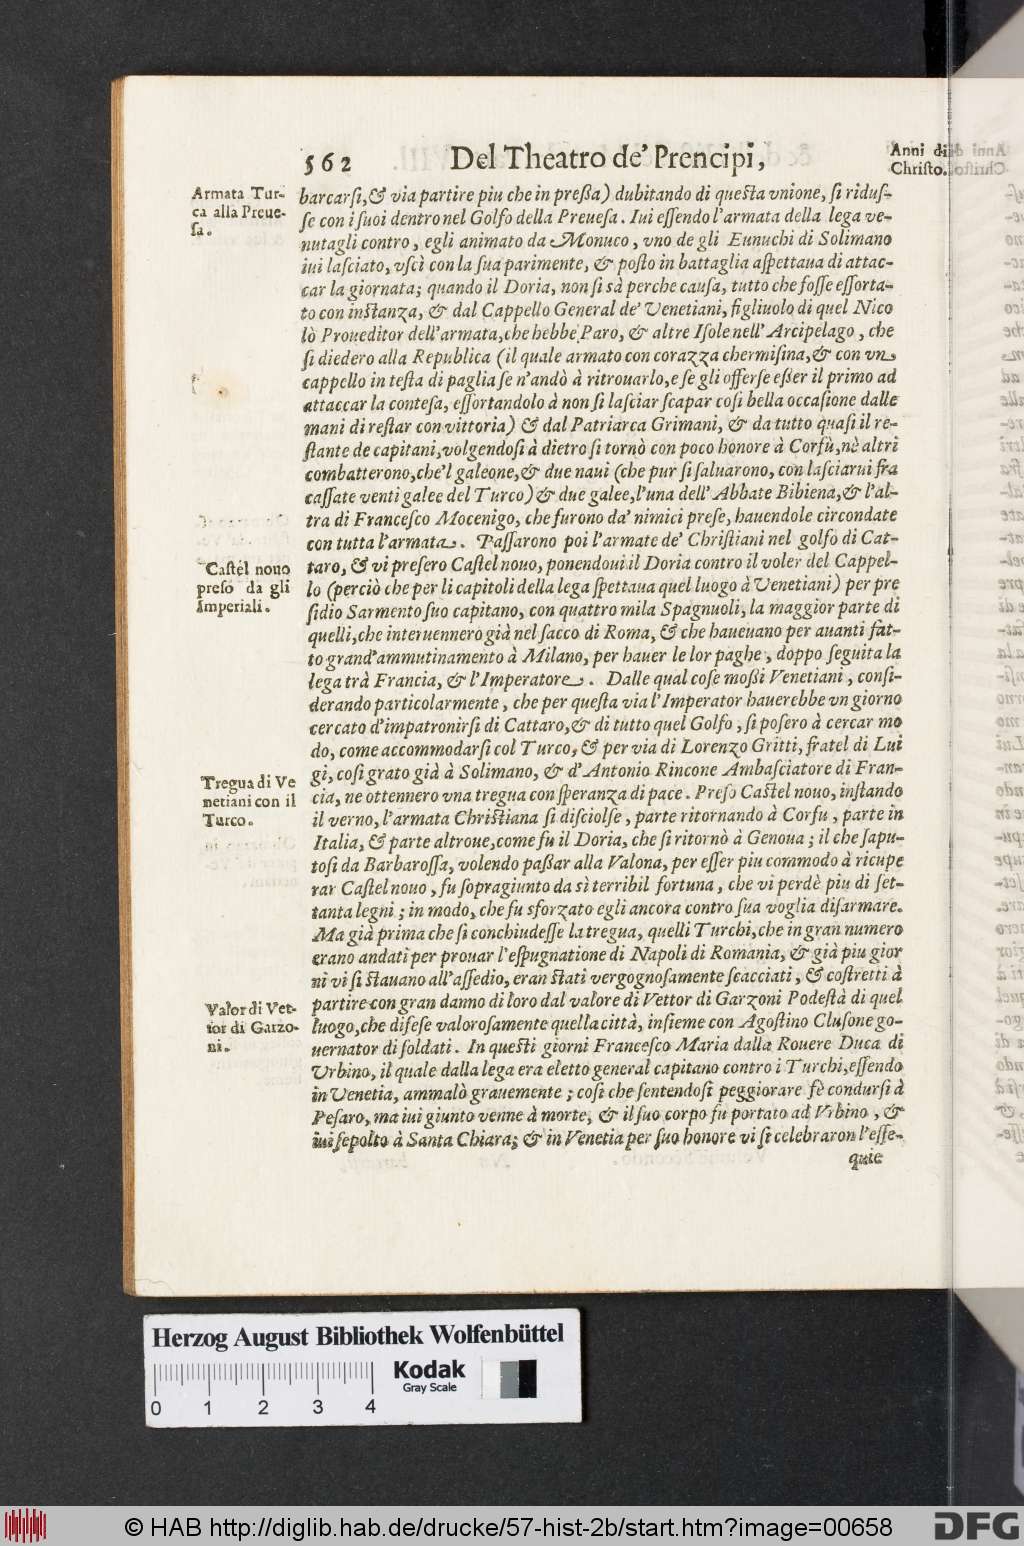 562 Del Theatro de' Prencipi,
Anni di
Christo.
Armata Tur-
ca alla Preue-
ſa.
barcarſi, & via partire piu che in preßa) dubitando di queſta vnione, ſi riduſ-
ſe con i ſuoi dentro nel Golfo della Preueſa. Iui eſſendo l'armata della lega ve-
nutagli contro, egli animato da Monuco, vno de gli Eunuchi di Solimano
iui laſciato, vſcì con la ſua parimente, & poſto in battaglia aſpettaua di attac-
car la giornata; quando il Doria, non ſi sà perche cauſa, tutto che foſſe eſſorta-
to con inſtanza, & dal Cappello General de' Venetiani, figliuolo di quel Nico
lò Proueditor dell'armata, che hebbe Paro, & altre Iſole nell'Arcipelago, che
ſi diedero alla Republica (il quale armato con corazza chermiſina, & con vn
cappello in teſta di paglia ſe n'andò à ritrouarlo, e ſe gli offerſe eßer il primo ad
attaccar la conteſa, eſſortandolo à non ſi laſciar ſcapar coſi bella occaſione dalle
mani di reſtar con vittoria) & dal Patriarca Grimani, & da tutto quaſi il re-
ſtante de capitani, volgendoſi à dietro ſi tornò con poco honore à Corfù, nè altri
combatterono, che'l galeone, & due naui (che pur ſi ſaluarono, con laſciarui fra
caſſate venti galee del Turco) & due galee, l'una dell'Abbate Bibiena, & l'al-
tra di Franceſco Mocenigo, che furono da' nimici preſe, hauendole circondate
con tutta l'armata. Paſſarono poi l'armate de' Chriſtiani nel golfo di Cat-
Caſtel nouo
preſo da gli
Imperiali.
taro, & vi preſero Caſtel nouo, ponendoui il Doria contro il voler del Cappel-
lo (perciò che per li capitoli della lega ſpettaua quel luogo à Venetiani) per pre
ſidio Sarmento ſuo capitano, con quattro mila Spagnuoli, la maggior parte di
quelli, che interuennero già nel ſacco di Roma, & che haueuano per auanti fat-
to grand'ammutinamento à Milano, per hauer le lor paghe, doppo ſeguita la
lega trà Francia, & l'Imperatore. Dalle qual coſe moßi Venetiani, conſi-
derando particolarmente, che per queſta via l'Imperator hauerebbe vn giorno
cercato d'impatronirſi di Cattaro, & di tutto quel Golfo, ſi poſero à cercar mo
do, come accommodarſi col Turco, & per via di Lorenzo Gritti, fratel di Lui
Tregua di Ve
netiani con il
Turco.
gi, coſi grato già à Solimano, & d'Antonio Rincone Ambaſciatore di Fran-
cia, ne ottennero vna tregua con ſperanza di pace. Preſo Caſtel nouo, inſtando
il verno, l'armata Chriſtiana ſi diſciolſe, parte ritornando à Corfu, parte in
Italia, & parte altroue, come fu il Doria, che ſi ritornò à Genoua; il che ſapu-
toſi da Barbaroſſa, volendo paßar alla Valona, per eſſer piu commodo à ricupe
rar Caſtel nouo, fu ſopragiunto da sì terribil fortuna, che vi perdè piu di ſet-
tanta legni; in modo, che fu sforzato egli ancora contro ſua voglia diſarmare.
Ma già prima che ſi conchiudeſſe la tregua, quelli Turchi, che in gran numero
erano andati per prouar l'eſpugnatione di Napoli di Romania, & già piu gior
ni vi ſi ſtauano all'aſſedio, eran ſtati vergognoſamente ſcacciati, & coſtretti à
Valor di Vet-
tor di Garzo-
ni.
partire con gran danno di loro dal valore di Vettor di Garzoni Podeſtà di quel
luogo, che difeſe valoroſamente quella città, inſieme con Agoſtino Cluſone go-
uernator di ſoldati. In queſti giorni Franceſco Maria dalla Rouere Duca di
Vrbino, il quale dalla lega era eletto general capitano contro i Turchi, eſſendo
in Venetia, ammalò grauemente; coſi che ſentendoſi peggiorare fè condurſi à
Peſaro, ma iui giunto venne à morte, & il ſuo corpo fu portato ad Vrbino, &
iui ſepolto à Santa Chiara; & in Venetia per ſuo honore vi ſi celebraron l'eſſe-
quie
Herzog August Bibliothek Wolfenbüttel
Kodak
Gray Scale
0 1 2 3 4
© HAB http://diglib.hab.de/drucke/57-hist-2b/start.htm?image=00658
DFG